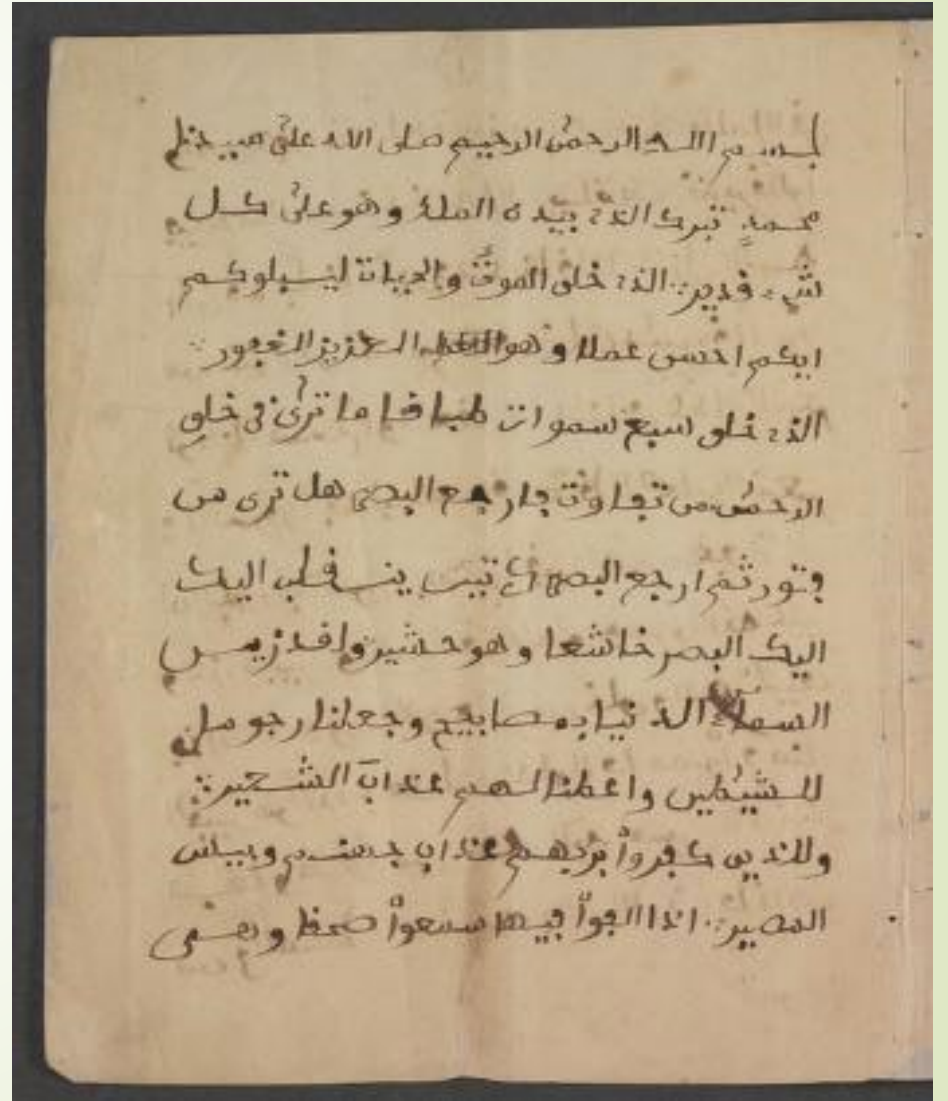 بسم الله الرحمن الرحيم صلى الله على سيدنا
محمد تبرك الذي بيده الملك وهو على كل
شيء قدير الذي خلق الموت والحيات ليبلوكم
ايكم احسن عملا وهو العزيز الغفور
الذي خلق سبع سموات طباقا ما ترى في خلق
الرحمن من تفاوت فارجع البصر هل ترى من
فتور ثم ارجع البصر كرتين ينقلب اليك
اليك البصر خاشعا وهو حشير ولقد زين
السماء الدنيا بمصابيح وجعلنا رجوما
للشيطين واعطنا لهم عذاب الشعير
وللذين كفروا بربهم عذاب جهنم وبيس
المصير اذا القوا فيها سمعوا